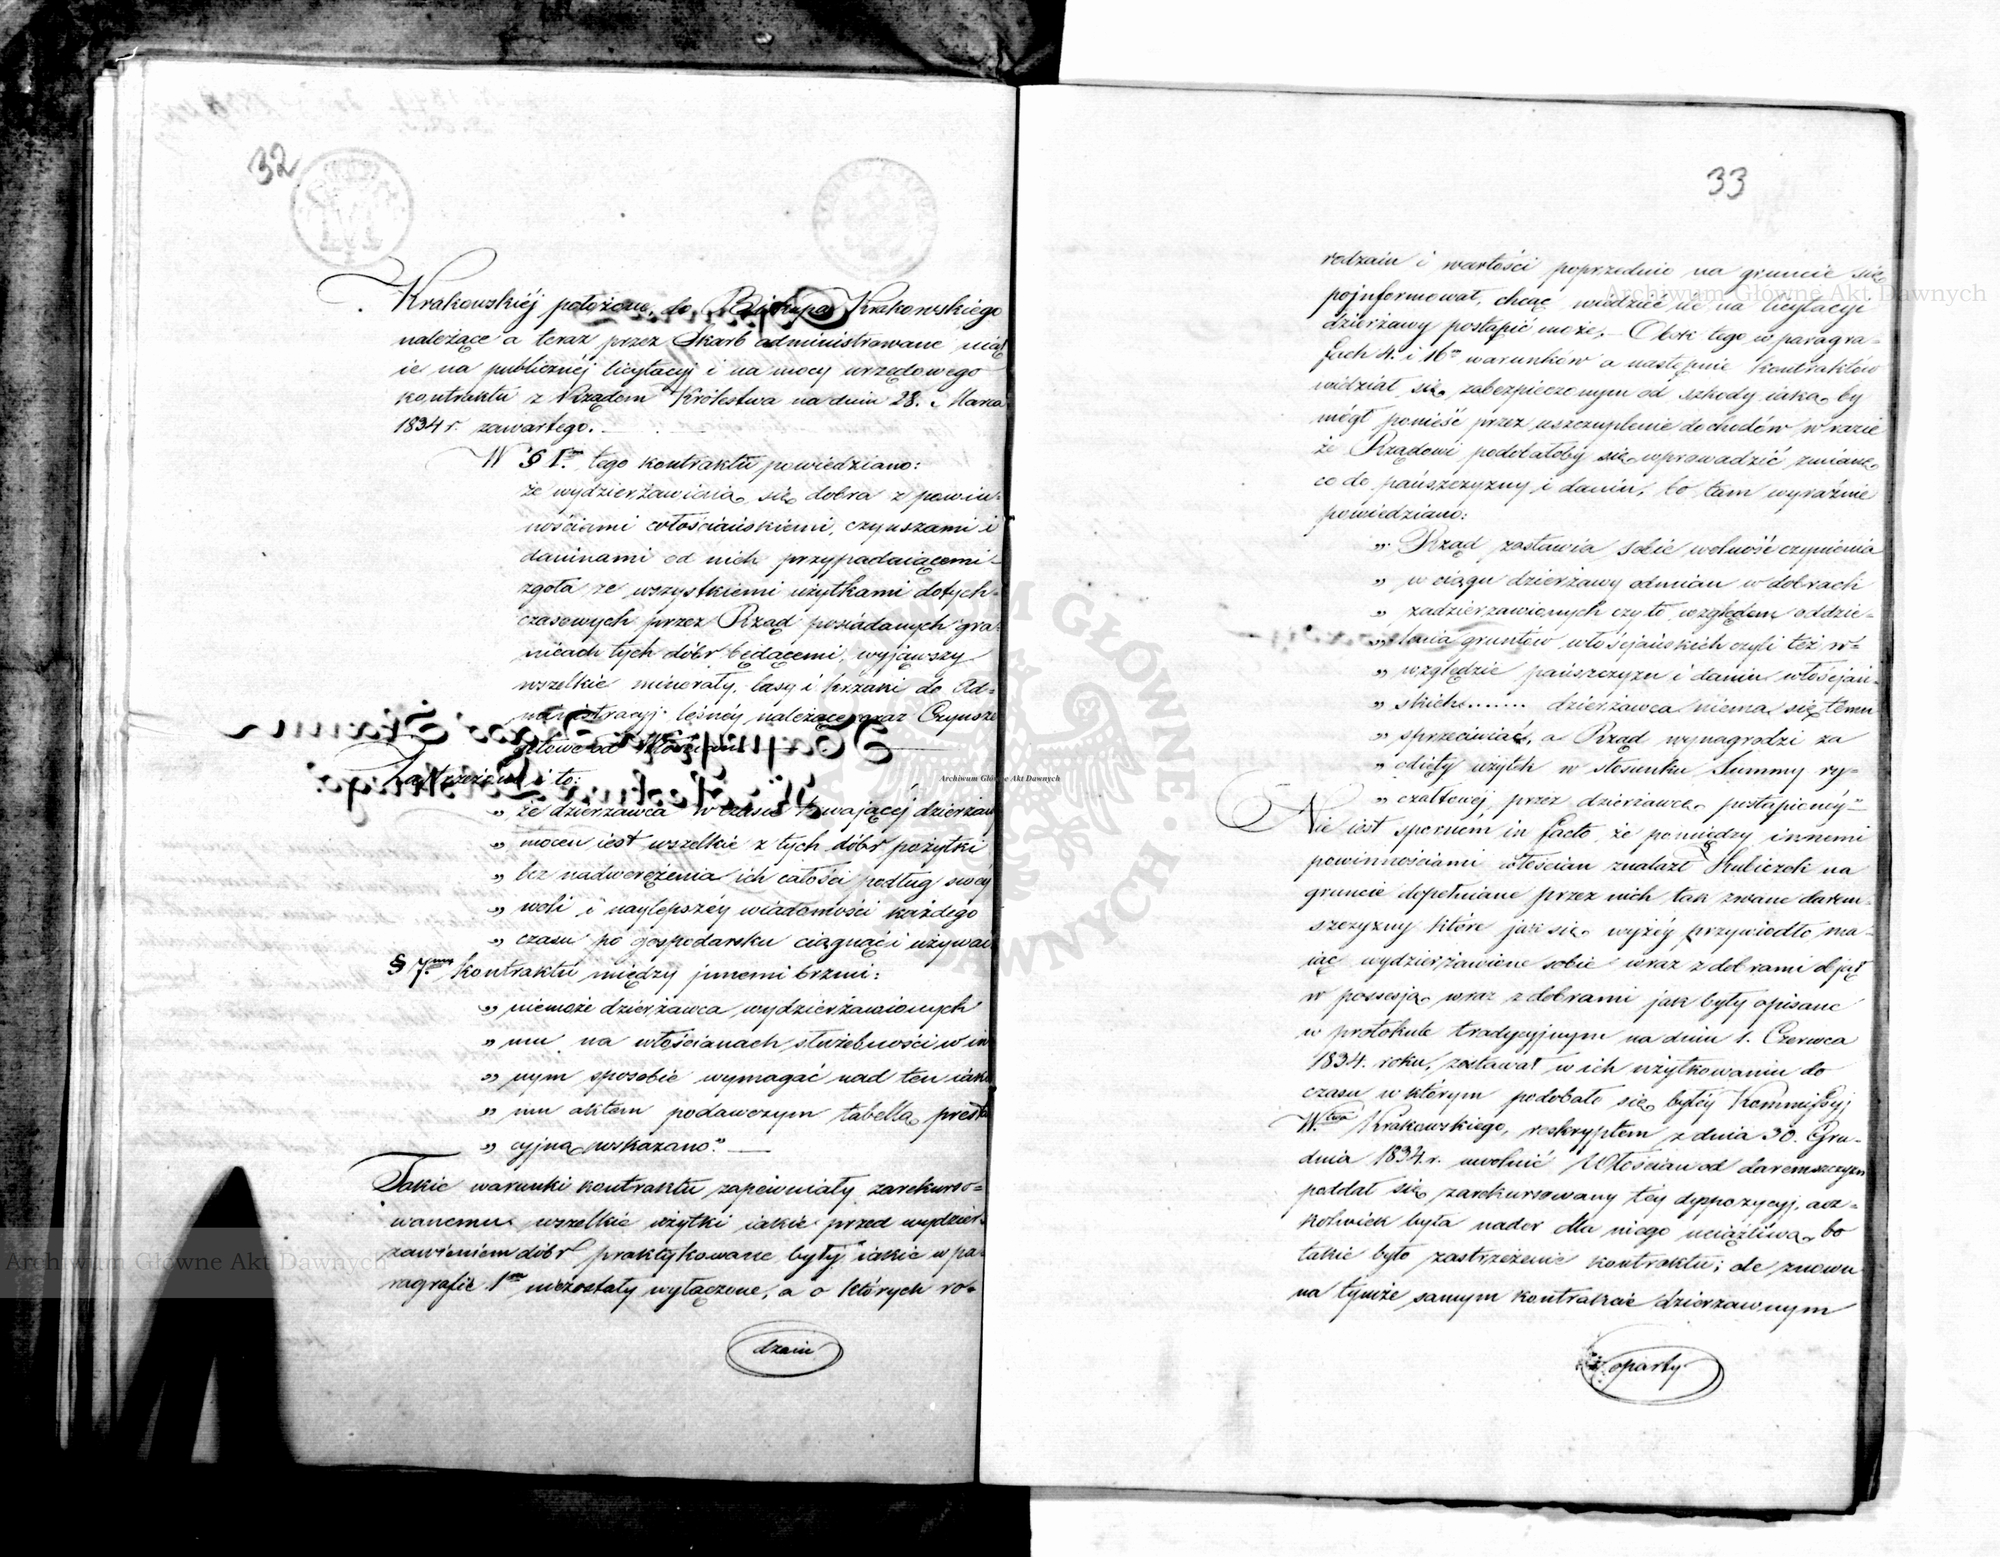 32
Krakowskiéj położone, do Biskupa Krakowskiego
należące a teraz przez Skarb administrowane wziął
ie na publicznéj licytacyi i na mocy urzędowego
kontraktu z Rządem Królestwa na dniu 28. Marca
1834 r. zawartego.
W § 1. tego kontraktu powiedziano:
że wydzierżawiaią się dobra z powin-
nościami włościańskiemi, czynszami i
daninami od nich przypadaiącemi
zgoła ze wszystkiemi użytkami dotych-
czasowych przez Rząd posiadanych gra-
nicach tych dóbr będącemi, wyjąwszy
wszelkie minerały, lasy i krzaki do Ad-
ministracyi leśnéj należące oraz Czynsze
gotowe od Włościan
Zastrzeżono i to:
„ że dzierżawca w czasie trwającéj dzierżawy
„ mocen iest wszelkie z tych dóbr pożytki
„ bez nadwerężenia ich całości podług swéj
„ woli i naylepszéy wiadomości każdego
„ czasu po gospodarsku ciągnąć i używać
§ 7my kontraktu między innemi brzmi:
„ niemoże dzierżawca wydzierżawionych
„ mu na włościanach służebności w in
„ nym sposobie wymagać nad ten iaki
„ mu aktem podawczym tabellą presta
„ cyjną wskazano."
Takie warunki kontraktu zapewniały zarekurso-
wanemu wszelkie użytki iakie przed wydzier-
żawieniem dóbr praktykowane były iakie w pa-
ragrafie 1m niezostały wyłączone, a o których ro-
dzaiu
33
rodzaiu i wartości poprzednio na gruncie się
poinformował, chcąc wiedzieć ile na licytacyi
dzierżawy postąpić może. Obok tego w paragra-
fach 4. i 16m warunków a następnie kontraktów
widział się zabezpieczonym od szkody iaką by
mógł ponieść przez uszczuplenie dochodów w razie
że Rządowi podobałoby się wprowadzić zmianę
co do pańszczyzny i danin, bo tam wyraźnie
powiedziano:
„ Rząd zostawia sobie wolność czynienia
„ w ciągu dzierżawy odmian w dobrach
„ zadzierżawionych czy to względem oddzie-
„ lenia gruntów włościańskich czyli też w
„ względzie pańszczyzn i danin włościań-
„ skich....... dzierżawca niema się temu
„ sprzeciwiać, a Rząd wynagrodzi za
„ odięty użytek w stosunku Summy ry-
„ czałtowéj przez dzierżawcę postąpionéy"
Nie iest spornem in facto, że pomiędzy innemi
powinnościami włościan znalazł Kuliczek na
gruncie dopełniane przez nich tak zwane darem-
szczyzny które jak się wyżéy przywiodło ma-
iąc wydzierżawione sobie wraz z dobrami objął
w possesją wraz z dobrami jak były opisane
w protokule tradycyjnym na dniu 1. Czerwca
1834. roku, zostawał w ich użytkowaniu do
czasu w którym podobało się byłéy Kommissyi
W.twa Krakowskiego, reskryptem z dnia 30. Gru-
dnia 1834. r. uwolnić Włościan od daremszczyzn
poddał się zarekursowany téy dyspozycyi, acz-
kolwiek była nader dla niego uciążliwą, bo
takie było zastrzeżenie kontraktu; ale znowu
na tymże samym kontrakcie dzierżawnym
oparty
Archiwum Główne Akt Dawnych